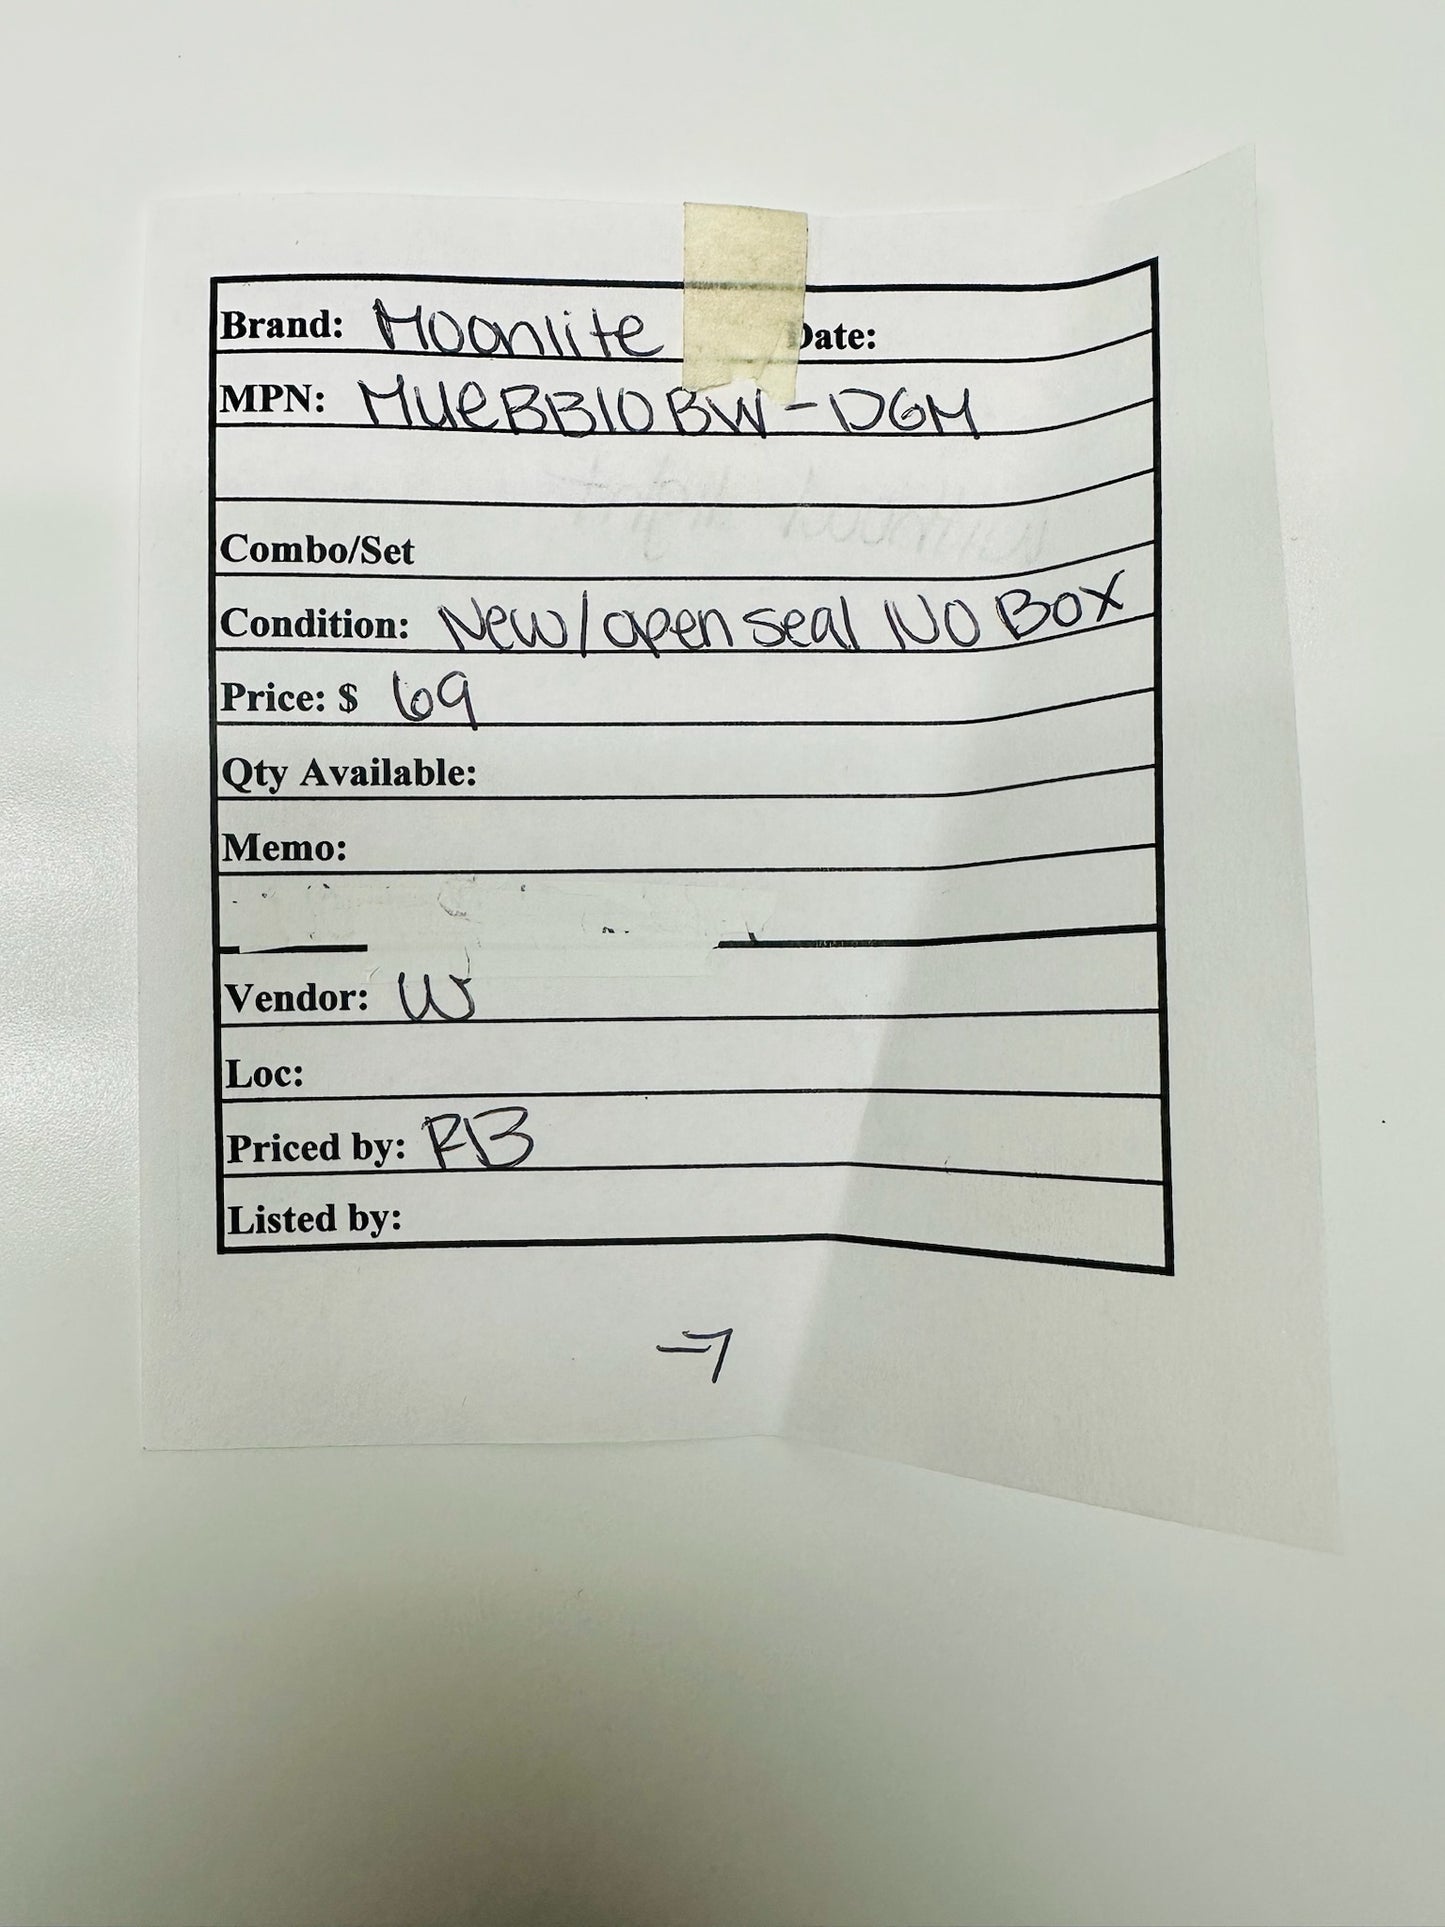 Brand: Moonlite Date:
MPN: MUEBB10BW-DGM
Combo/Set
Condition: New/open seal NO BOX
Price: $ 69
Qty Available:
Memo:
Vendor: W
Loc:
Priced by: RB
Listed by:
-7